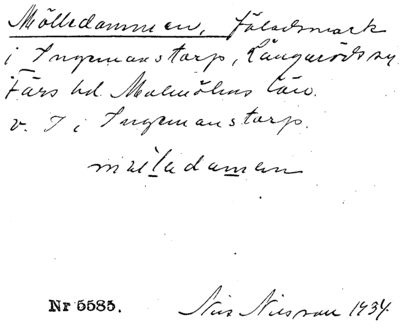 Mölledammen, fäladsmark
i Ingemanstorp, Långaröds sn
Färs hd Malmöhus län.
v. I i Ingemanstorp.
mølladamen
Nr 5585.
Nils Nilsson 1934